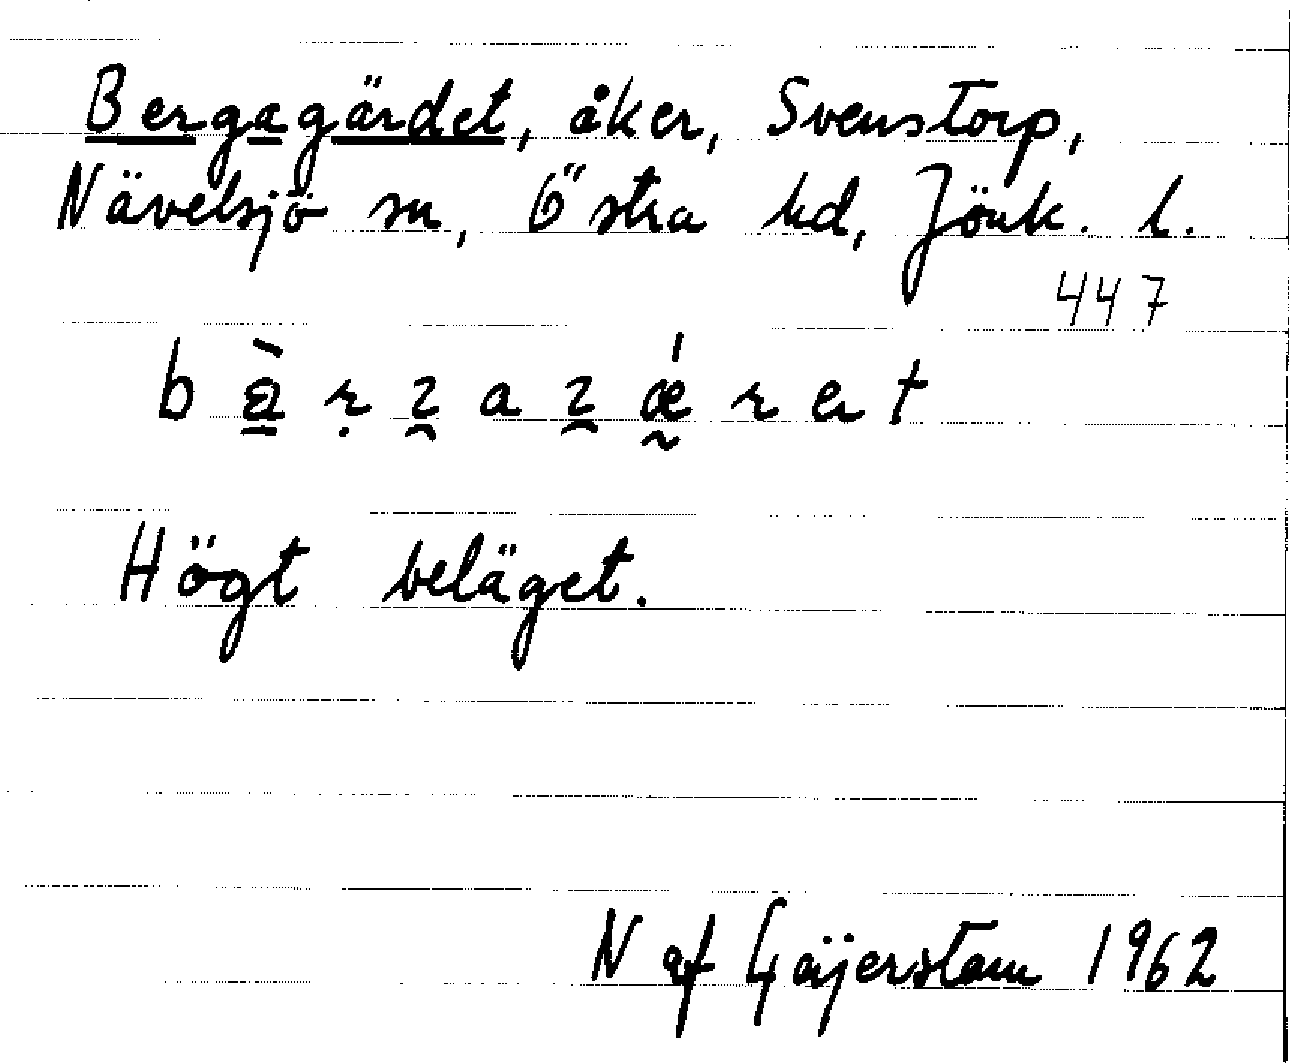 Bergagärdet, åker, Svenstorp,
Nävelsjö sn, Östra hd, Jönk. l.
447
Högt beläget.
N af Gäijerstam 1962